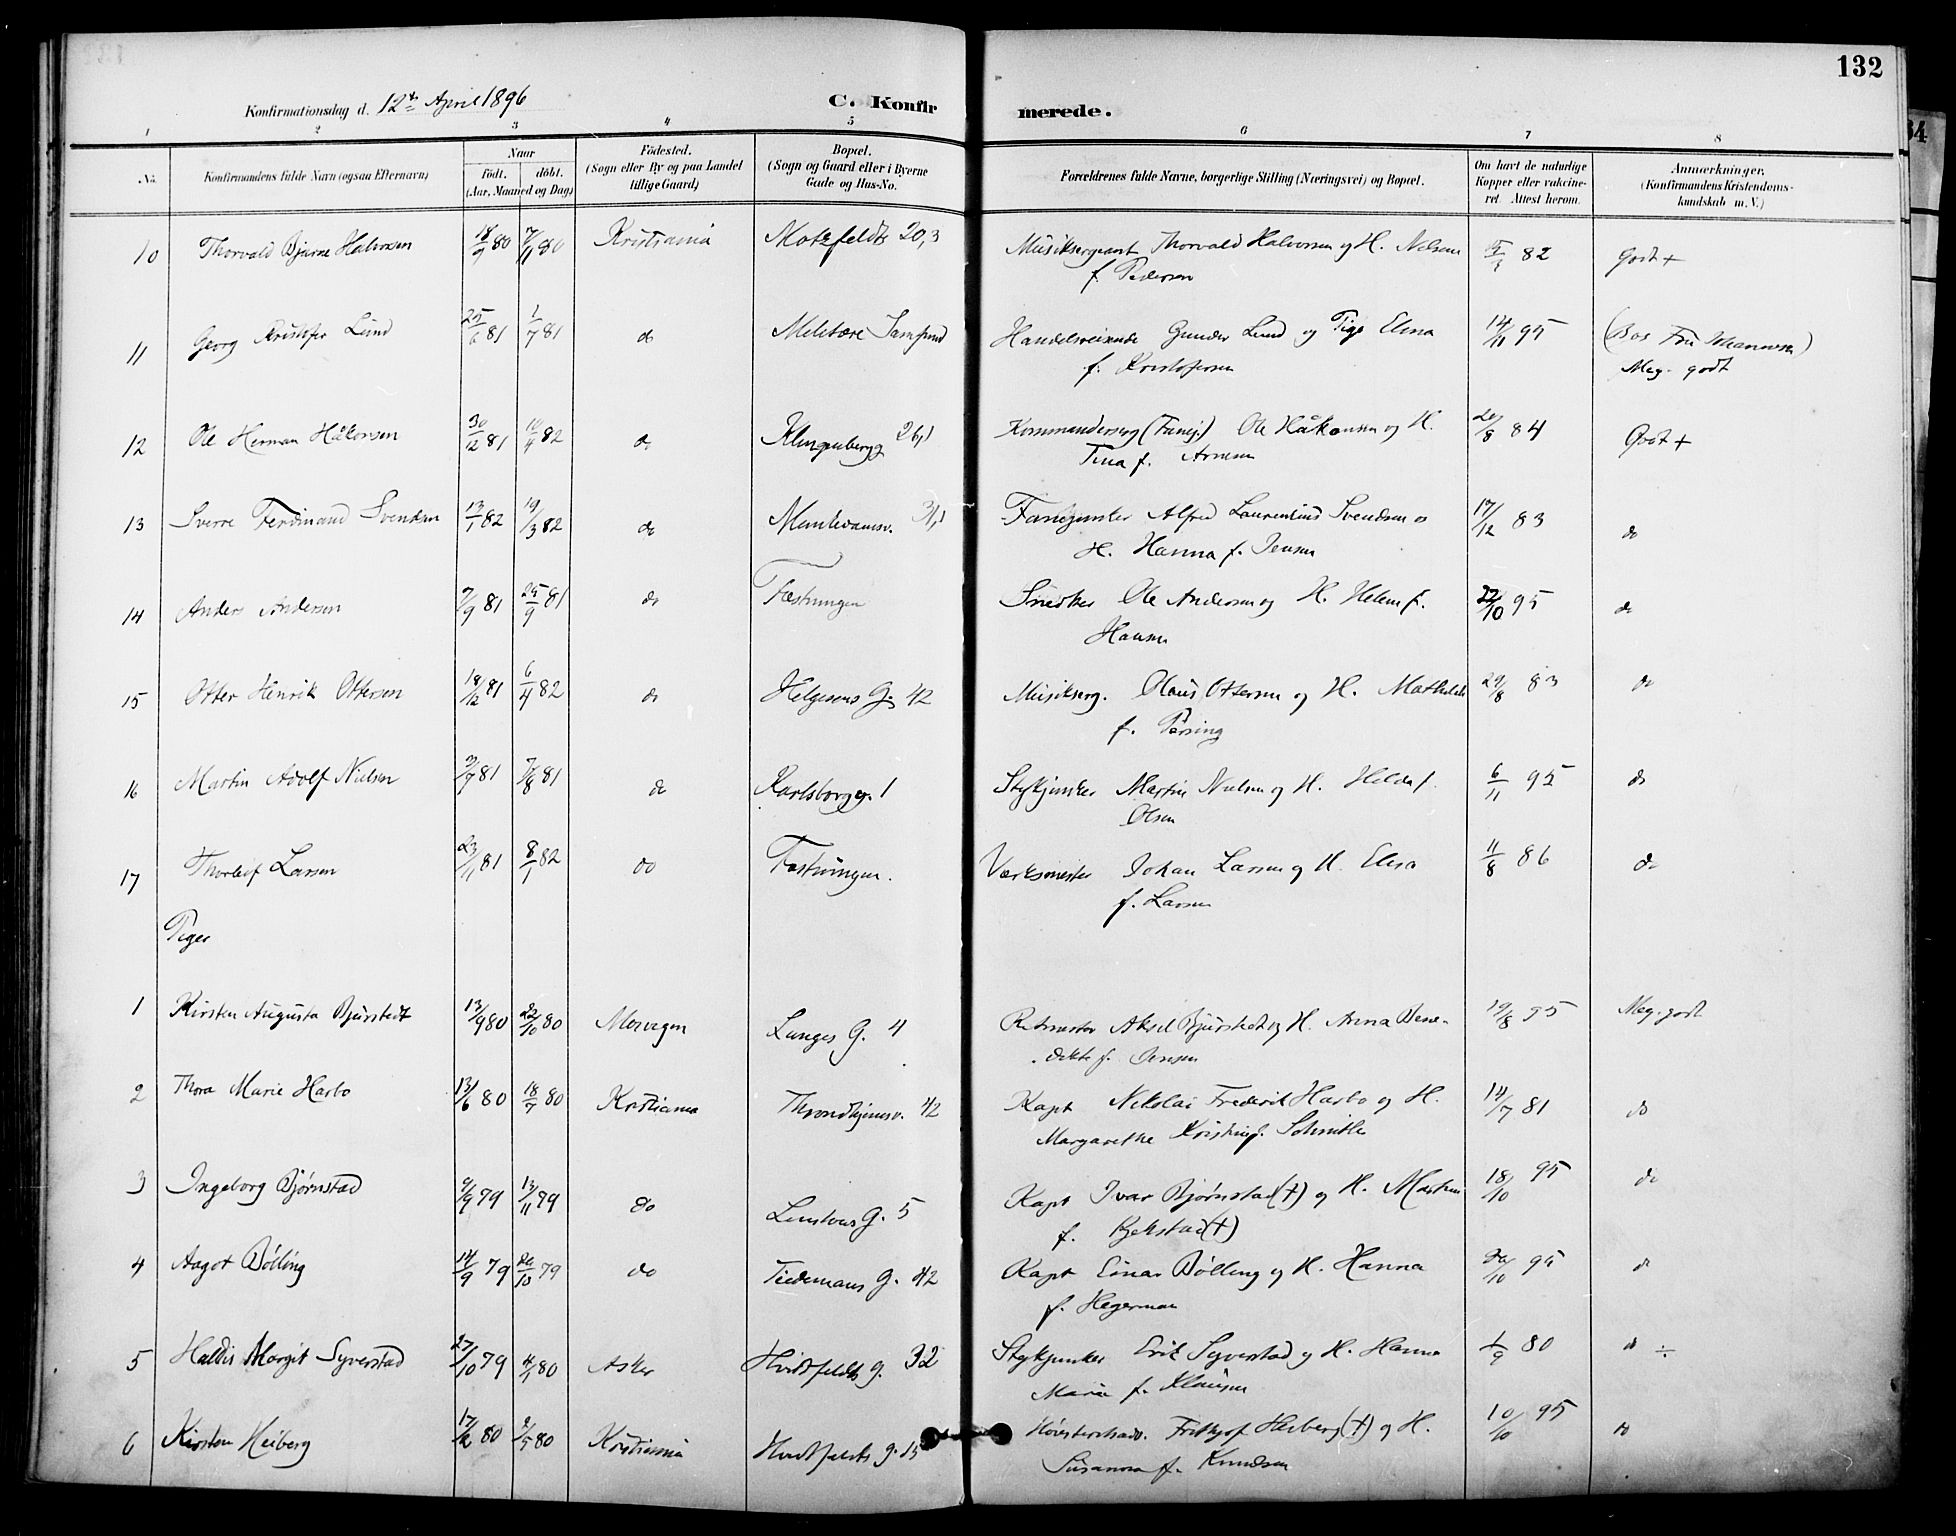 132
Konfirmationsdag d. 12te April 1896
C. Konfirmerede.
1 2 3 4 5 6 7 8
No. Konfirmandens fulde Navn (ogsaa Efternavn) Naar født. døbt. (Aar, Maaned og Dag) Fødested. (Sogn eller By og paa Landet tillige Gaard) Bopæl. (Sogn og Gaard eller i Byerne Gade og Hus-No. Forældrenes fulde Navne, borgerlige Stilling (Næringsvei) og Bopæl. Om havt de naturlige Kopper eller vakcineret. Attest herom. Anmærkninger. (Konfirmandens Kristendomskundskab m. V.)
10 Thorvald Bjarne Halvorsen 18/9 80 7/11 80 Kristiania Motzfeldts 20,3 Musiksergeant Thorvald Halvorsen og H. Nelsine 5/3 82 Godt +
f. Pedersen
11 Georg Kristofer Lund 25/6 81 1/7 81 do Militære Samfund Handelsreisende Gunder Lund og Pige Elina 14/11 95 (Bos Fru Johannesen)
f. Kristofersen Meg. godt
12 Ole Herman Håkonsen 30/12 81 10/4 82 do Klingenbergg 26,1 Kommandersrg (Fanej.) Ole Håkonsen og H. 20/8 84 Godt +
Tina f. Arnesen
13 Sverre Ferdinand Svendsen 13/1 82 19/3 82 do Munkedamsv. 31,1 Fanejunker Alfred Laurentius Svendsen og 17/12 83 do
H. Hanna f. Jensen
14 Anders Andersen 7/9 81 25/9 81 do Fæstningen Snedker Ole Andersen og H. Helene f. 22/10 95 do
Hansen
15 Otter Henrik Ottersen 18/12 81 6/4 82 do Helgesens G. 42 Musikserg. Olaus Ottersen og H. Mathilde 29/8 83 do
f.
16 Martin Adolf Nielsen 3/7 81 7/8 81 do Karlsborgg. 1 Stykjunker Martin Nielsen og H. Helda f. 6/11 95 do
Olsen
17 Thorleif Larsen 23/11 81 8/1 82 do Fæstningen. Værksmester Johan Larsen og H. Elisa 11/8 86 do
f. Larsen
Piger
1 Kirsten Augusta Bjurstedt 13/9 80 22/10 80 Morvigen Langes G. 4 Ritmester Aksel Bjurstedt og H. Anna Bene- 19/8 95 Meg. godt
dikte f. Jensen
2 Thora Marie Harbo 13/6 80 18/7 80 Kristiania Throndhjemsv. 42 Kapt Nikolai Frederik Harbo og H. 14/7 81 do
Margarethe Kristine f. Schnitler
3 Ingeborg Bjørnstad 9/9 79 13/11 79 do Linstows G. 5 Kapt Ivar Bjørnstad (+) og H. Martine 18/10 95 do
f. (+)
4 Aagot Bølling 14/9 79 26/10 79 do Tidemans G. 42 Kapt Einar Bølling og H. Hanna 20/10 95 do
f. Hegerman
5 Haldis Margit Syverstad 27/10 79 4/1 80 Asker Hvidtfeldts g. 32 Stykjunker Erik Syverstad og H. Hanna 1/9 80 do ÷
Marie f. Klausen
6 Kirsten Heiberg 17/2 80 2/5 80 Kristiania Hvidtfeldts g. 15 Frithjof Heiberg (+) og H. 10/10 95 do
Susanna f. Knudsen